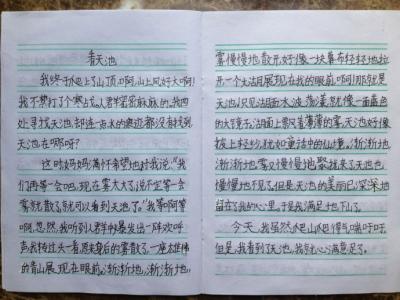 看天池
我终于爬上了山顶,啊,山上风好大啊!
我不禁打了个寒战。人群密密麻麻的。我四
处寻找天池,却连一点水的痕迹都没有找到。
天池在哪呀?
这时妈妈满怀希望地对我说:“我
们再等一会吧,现在雾太大了,说不定等一会
雾就散了,就可以看到天池了。”我等啊等
啊,忽然,我听到人群中暴发出一阵欢呼
声,我转过头一看,原来身后的雾散了,一座雄伟
的青山展现在眼前。渐渐地,渐渐地,
雾慢慢地散开,好像一块幕布轻轻地拉
开,一个大湖展现在我的眼前,啊!那就是
天池,只见湖面水波荡漾,就像一面蓝色
的大镜子。湖面上罩着薄薄的雾,天池好像
披上轻纱,犹如童话中的仙境。渐渐地,
渐渐地,雾又慢慢地聚拢来了,天池也
慢慢地不见了。但是天池的美丽已深深地
留在了我的心里。于是我满足地下山了。
今天,我虽然爬山爬得气喘吁吁,
但是,我看到了天池,我就心满意足了。